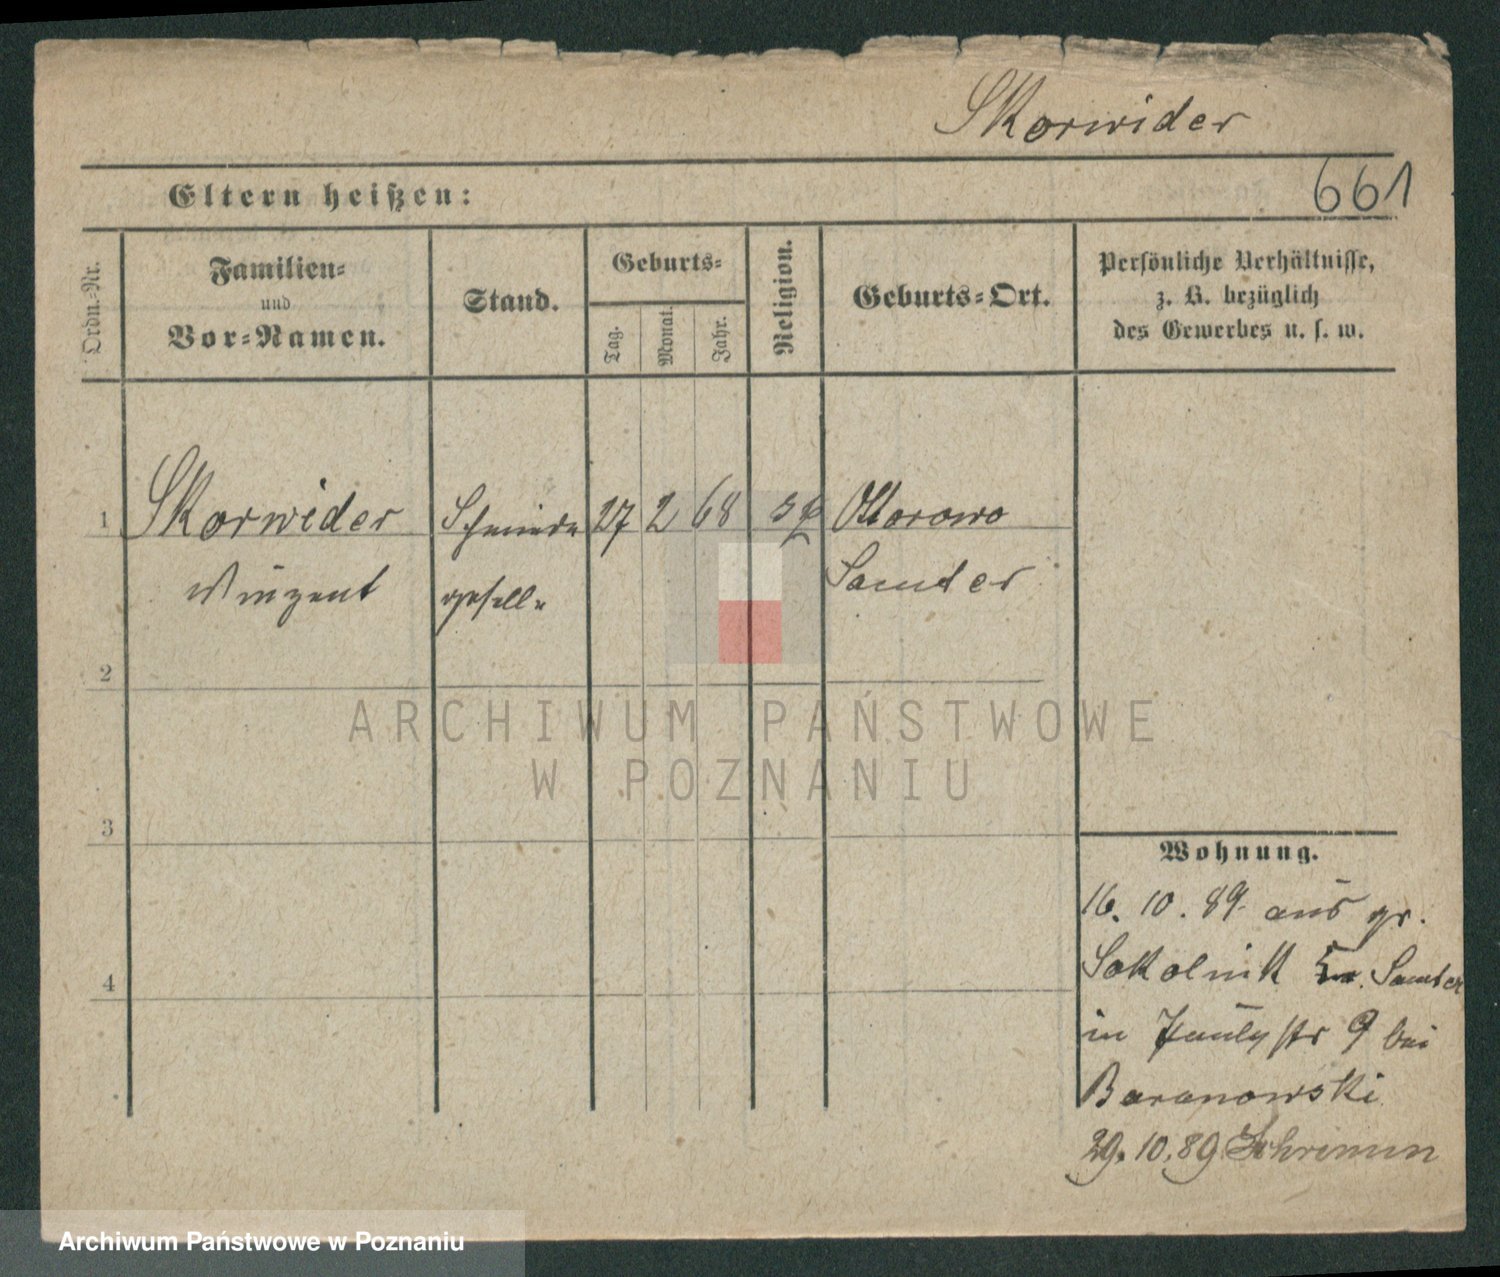 Skorwider
661
Eltern heißen:
Ordn.-Nr.
Familien-
und
Vor-Namen.
Stand.
Geburts-
Tag.
Monat.
Jahr.
Religion.
Geburts-Ort.
Persönliche Verhältnisse,
z. B. bezüglich
des Gewerbes u. s. w.
1 Skorwider Schmiede 27 2 68 Ottorowo
Winzent geselle Samter
2
3
4
ARCHIWUM PAŃSTWOWE
W POZNANIU
Wohnung.
16. 10. 89. aus gr.
Sokolnik Samter
in 9 bei
Baranowski
29. 10. 89 Schrimm
Archiwum Państwowe w Poznaniu